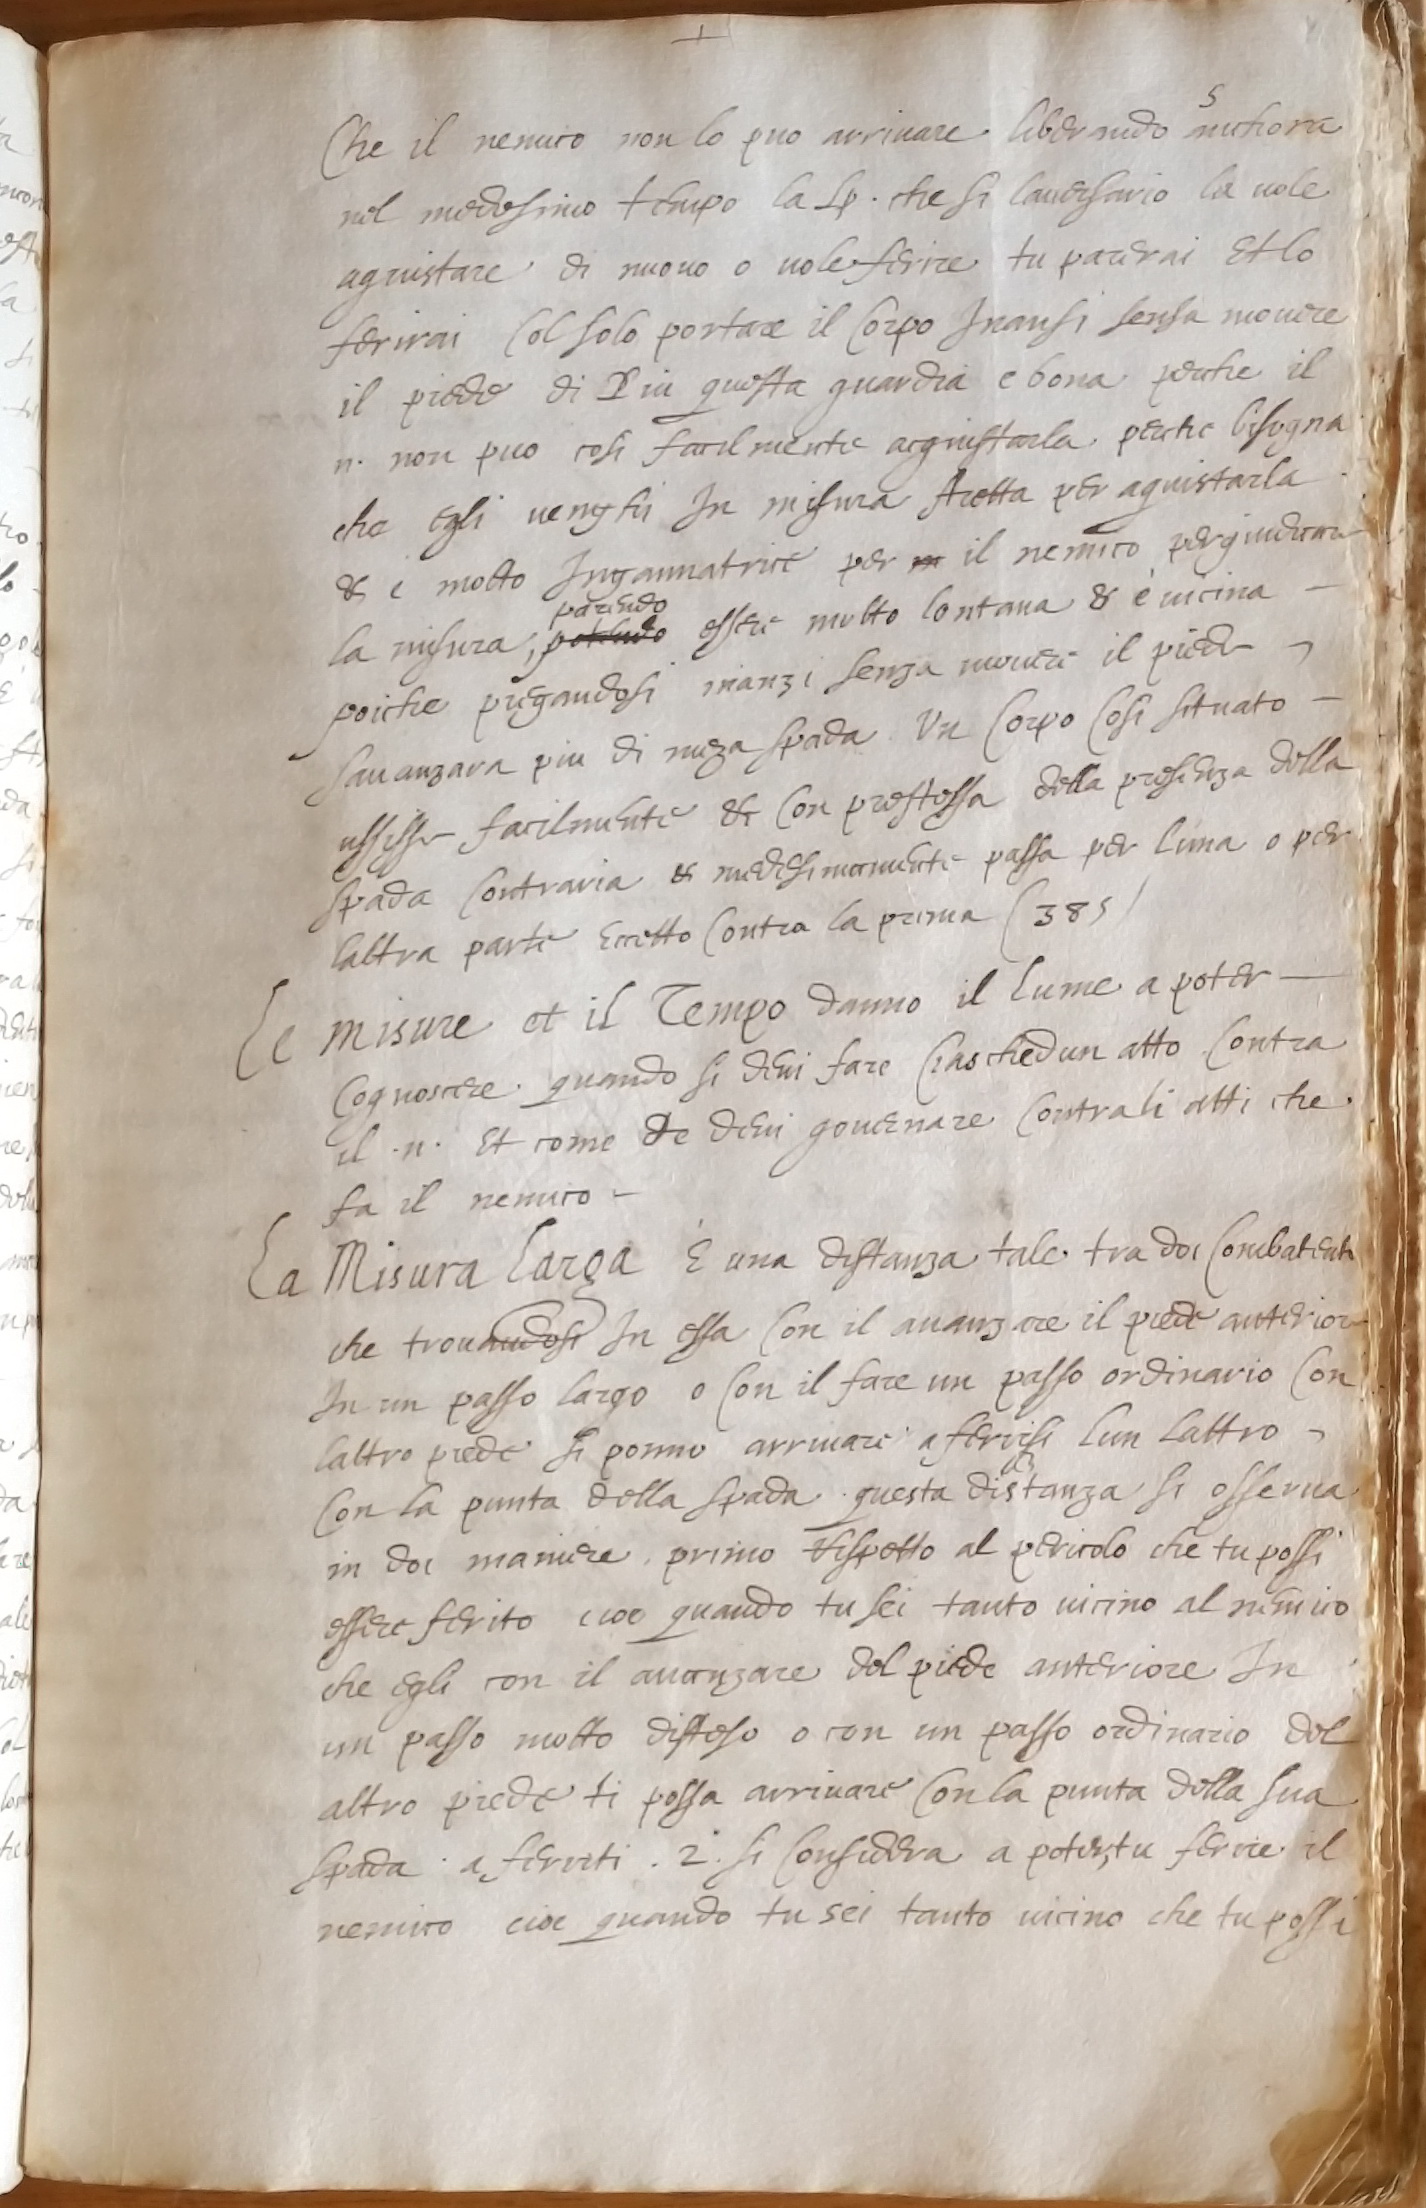 5
Che il nemico non lo puo arrivare liberando anchora
nel medesimo tempo la sp. che si laversario la vole
aquistare di nuovo o vole ferire tu parerai et lo
ferirai col solo portare il corpo inansi sensa movere
il piede di piu questa guardia e bona perche il
n. non puo cosi facilmente acquistarla. perche bisogna
che egli venghi in misura stretta per aquistarla
& è molto ingannatrice per il nemico per giudicar
parendo
la misura, potendo essere molto lontana & è vicina –
poiche piegandosi inanzi senza movere il piede
savanzara piu di meza spada. Un corpo cosi situato –
ussisse facilmente & con prestessa della presenza della
spada contraria & medesimamente passa per luna o per
laltra parte eccetto contra la prima (385)
Le misure et il Tempo danno il lume a poter —
cognoscere quando si devi fare ciaschedun atto contra
il .n. et come te devi governare contra li atti che
fa il nemico –
La Misura Larga è una distanza tale tra doi combatenti
che trovandosi in essa con il avanzare il piede anterior
in un passo largo o con il fare un passo ordinario con
laltro piede si ponno arrivare a ferirsi lun laltro
con la punta della spada. questa distanza si osserva
in doi maniere. primo rispetto al pericolo che tu possi
essere ferito cioe quando tu sei tanto vicino al nemico
che egli con il avanzare del piede anteriore in
un passo molto disteso o con un passo ordinario del
altro piede ti possa arrivare con la punta della sua
spada a ferirti. 2. si considera a poter, tu ferire il
nemico cioe quando tu sei tanto vicino che tu possi